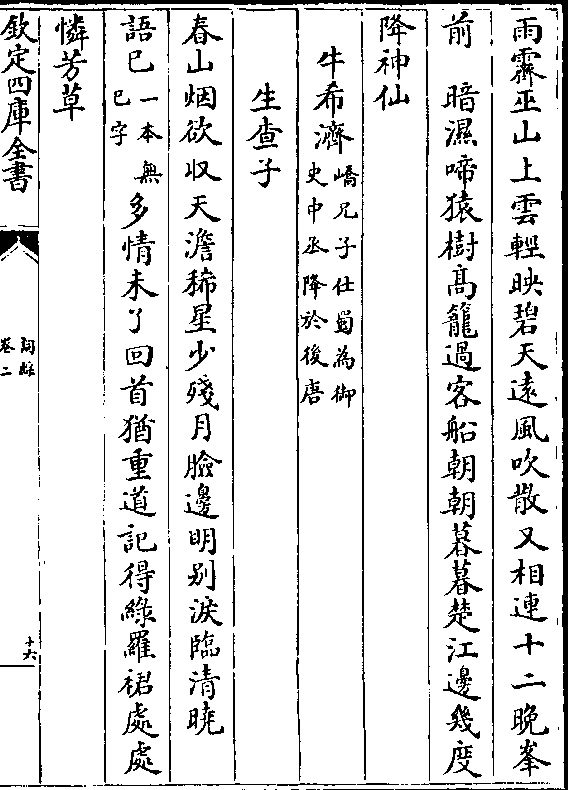 雨霽巫山上雲輕映碧天遠風吹散又相連十二晚峯
前　暗濕啼猿樹髙籠過客船朝朝暮暮楚江邊幾度
降神仙
牛希濟嶠兄子仕蜀為御史中丞降於後唐
生查子
春山烟欲收天澹稀星少殘月臉邊明别淚臨清曉
語已一本無已字多情未了回首猶重道記得綠羅裙處處
憐芳草
欽定四庫全書
詞綜
卷二
十六